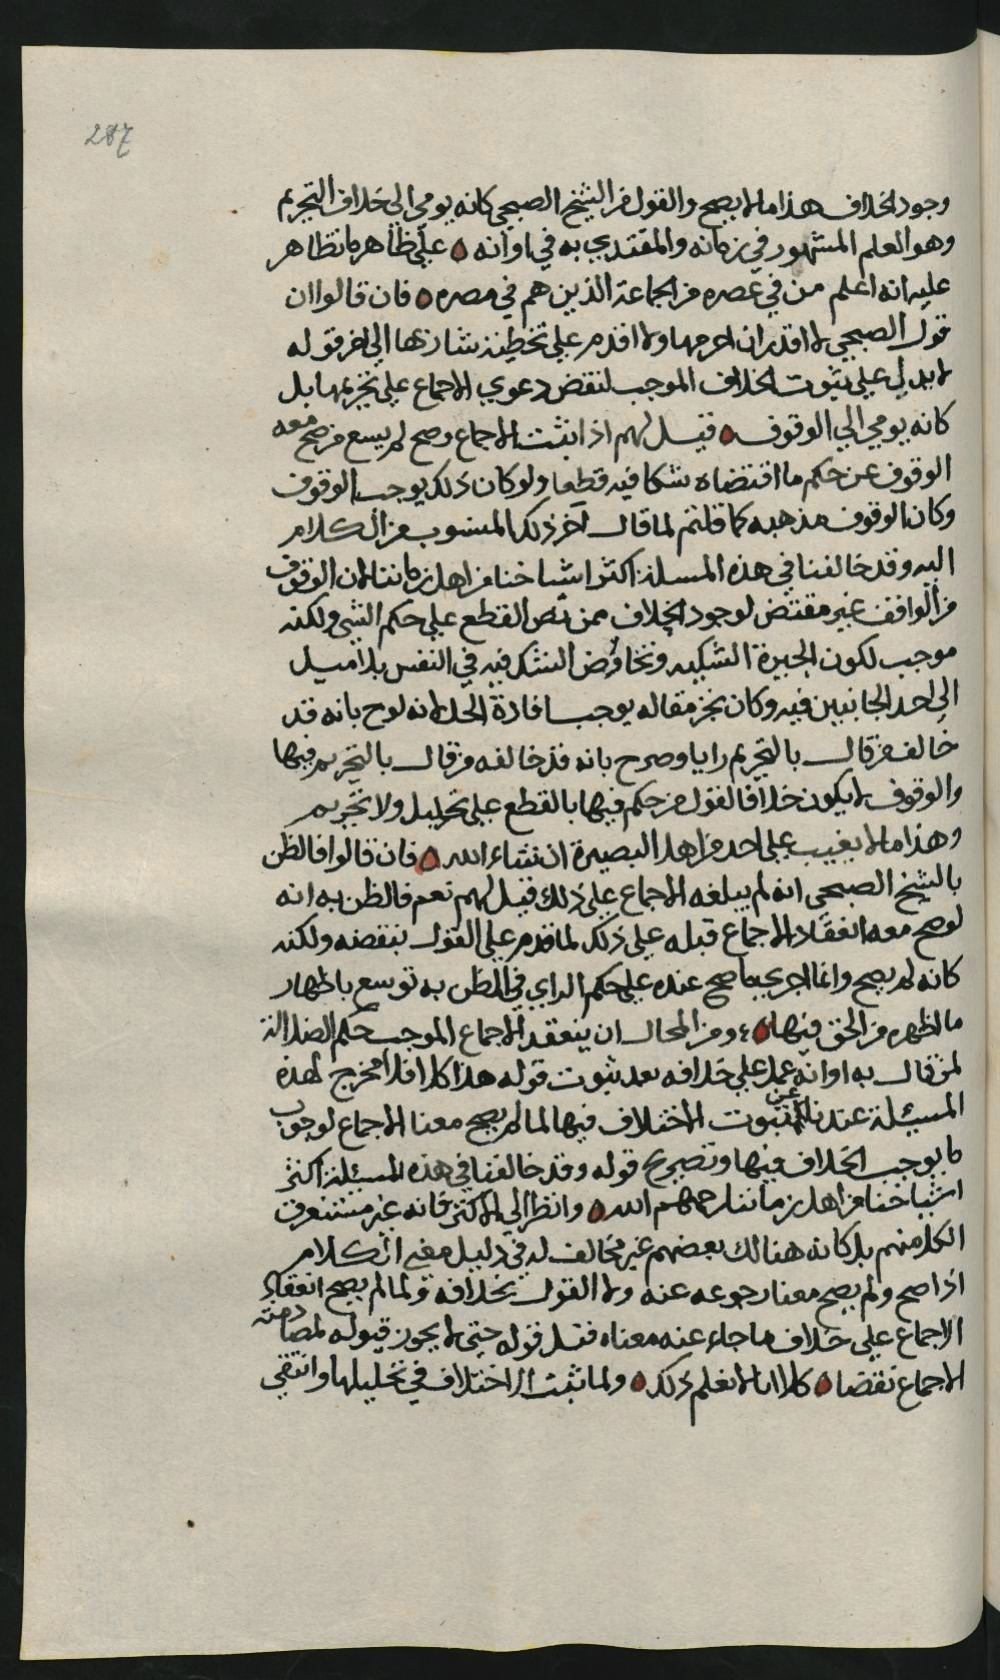 287
وجود الخلاف هذا ما لا يصح والقول من الشيخ الصبحي كانه يومي الي خلاف التحريم
وهو العلم المشهور في زمانه والمقتدي به في اوانه ه علي ظاهر ما تظاهر
عليه انه اعلم من في عصره من الجماعة الذين هم في مصره ه فان قالوا ان
قول الصبحي لا اقدر ان احرمها ولا اقدم علي تخطئة شاربها الي اخر قوله
لا يدل علي ثبوت الخلاف الموجب لنقض دعوي الاجماع علي تحريمها بل
كانه يومي الي الوقوف ه قيل لهم اذا ثبت الاجماع وصح لم يسع من صح معه
الوقوف عن حكم ما اقتضاه شكا فيه قطعا ولو كان ذلك يوجب الوقوف
وكان الوقوف مذهبه كما قلتم لما قال آخر ذلك المنسوب من الكلام
اليه وقد خالفنا في هذه المسلة اكثر اشياخنا من اهل زماننا لان الوقوف
من الواقف غير مقتض لوجود الخلاف ممن نص القطع علي حكم الشي ولكنه
موجب لكون الحيرة الشكيه وتخاوض الشك فيه في النفس بلا ميل
الي احد الجانبين فيه وكان بجز مقاله يوجب افادة الحل لانه لوح بانه قد
خالف من قال بالتحريم رايا وصرح بانه قد خالفه من قال بالتحريم فيها
والوقوف لا يكون خلافا لقول من حكم فيها بالقطع علي تحليل ولا تحريم
وهذا ما لا يغيب علي احد من اهل البصيرة ان شاء الله ه فان قالوا فالظن
بالشيخ الصبحي انه لم يبلغه الاجماع علي ذلك قيل لهم نعم فالظن به انه
لو صح معه انعقاد الاجماع قبله علي ذلك لما قدم علي القول بنقضه ولكنه
كانه لم يصح وانما اجري ما صح عنده علي حكم الراي في الظن به توسع باظهار
ما اظهره من الحق فيها ه ومن المحال ان ينعقد الاجماع الموجب حكم الضلالة
لمن قال به اوانه عمل علي خلافه بعد ثبوت قوله هذا كلا فلا مخرج لهذه
المسئلة عندنا عن ثبوت الاختلاف فيها لما لم يصح معنا الاجماع لوجوب
ما يوجب الخلاف فيها وتصريح قوله وقد خالفنا في هذه المسئلة اكثر
اشياخنا من اهل زماننا رحمهم الله ه وانظر الي الاكثر فانه غير مستغرق
الكل منهم بل كانه هنالك بعضهم غير مخالف له في دليل مفهم الكلام
اذا صح ولم يصح معنا رجوعه عنه ولا القول بخلافه ولما لم يصح انعقاد
الاجماع علي خلاف ما جاء عنه معناه قبل قوله حتي لا يجوز قبوله لمصادمته
الاجماع نقضا ه كلا انا لا نعلم ذلك ه ولما ثبت الاختلاف في تحليلها وانتفي